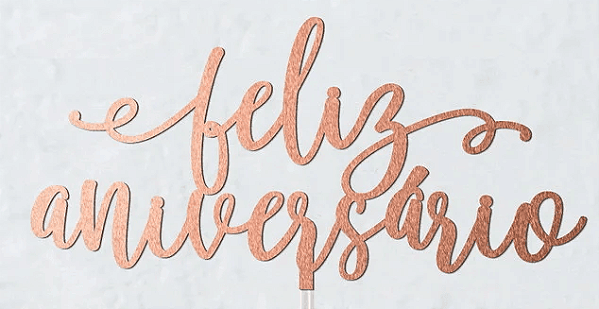 feliz
aniversário